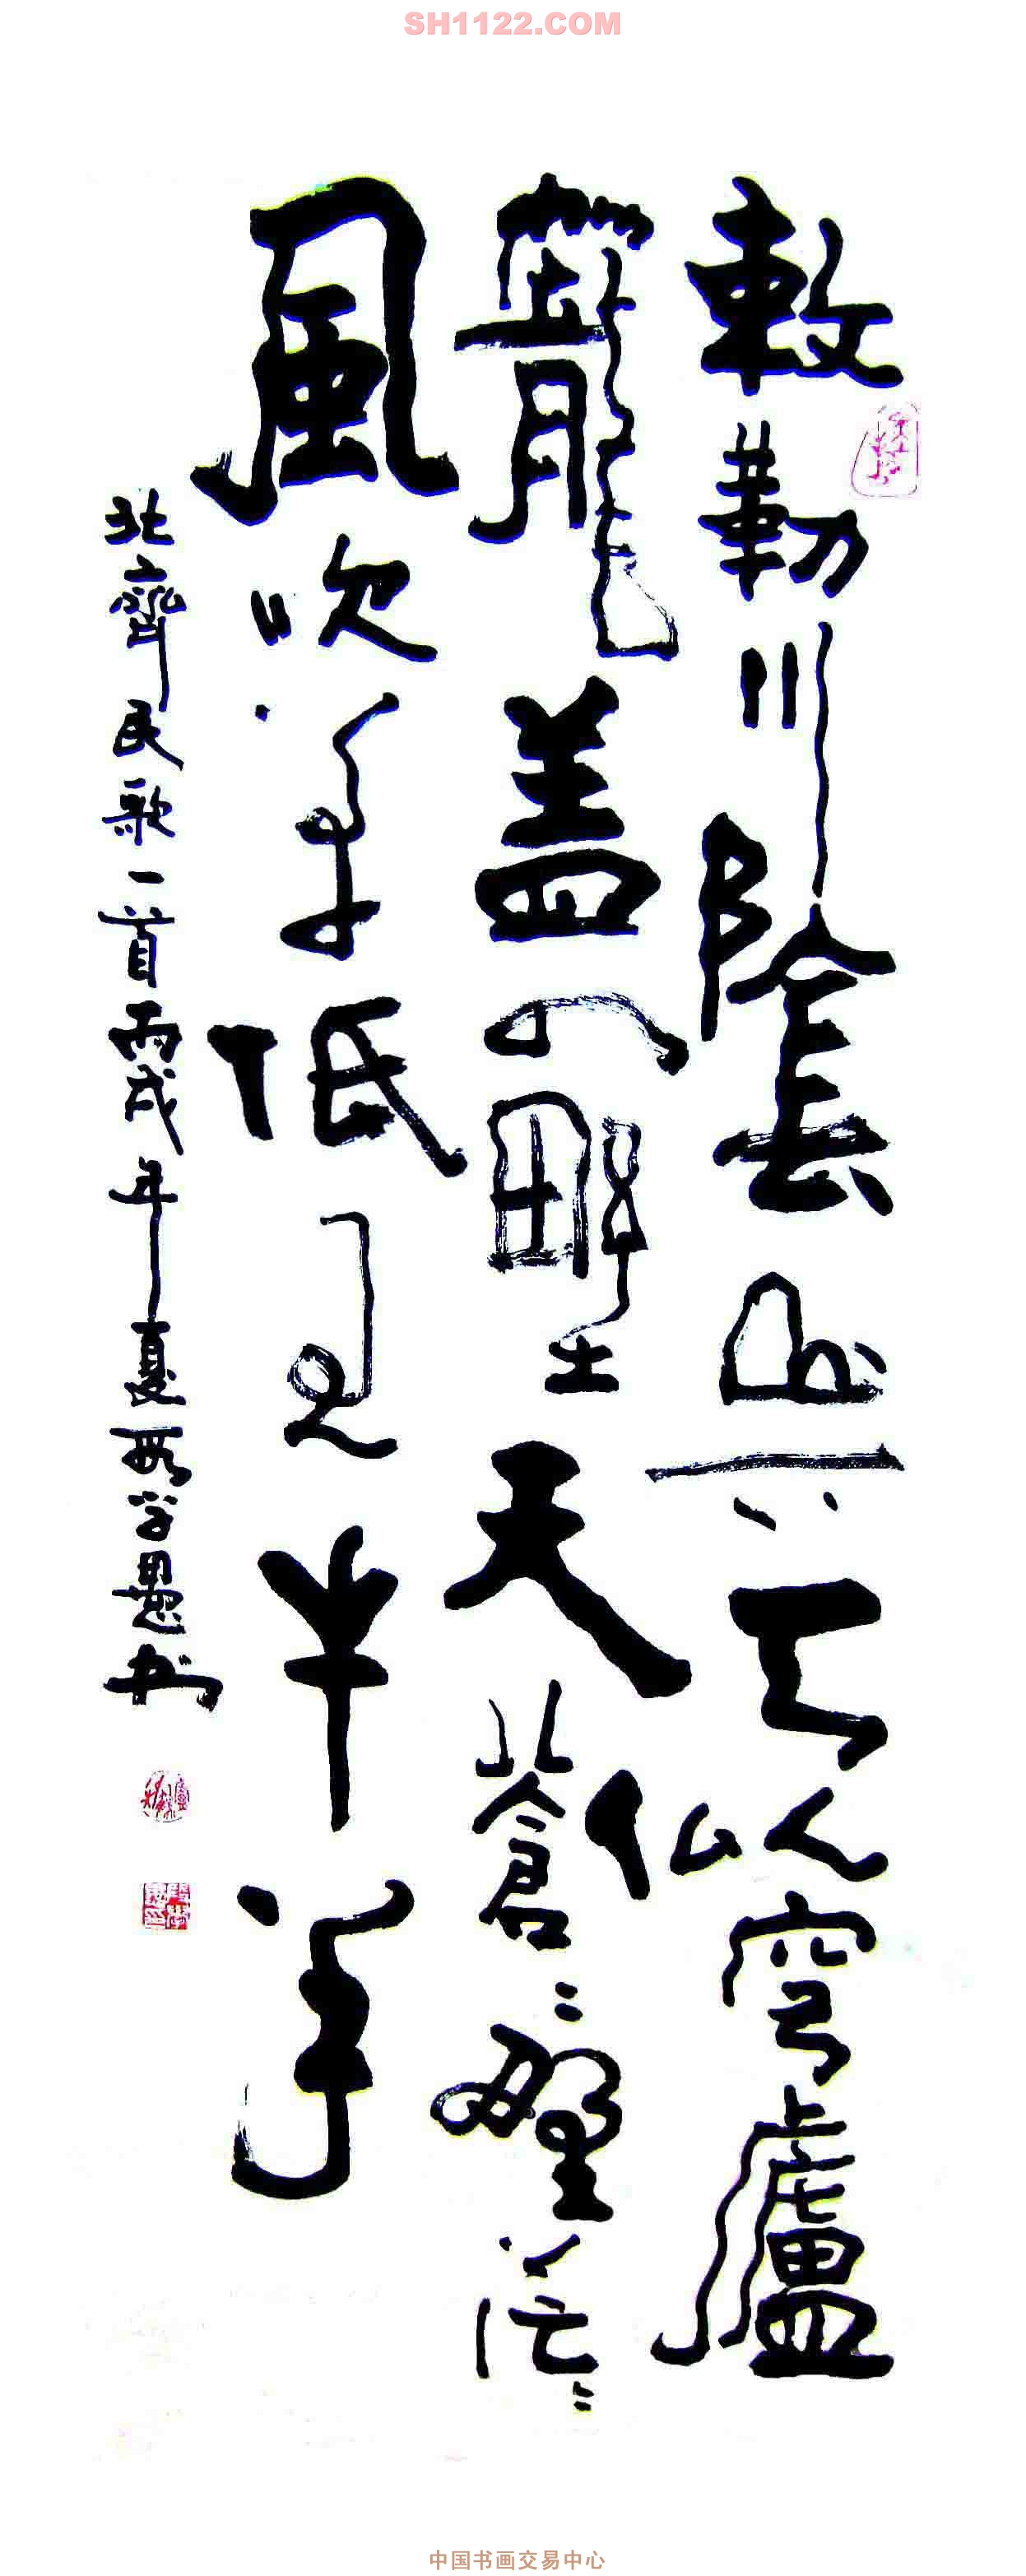 SH1122.COM
敕勒川陰山下天似穹廬
籠蓋四野天蒼蒼野茫茫
風吹草低見牛羊
北齊民歌一首丙戌年夏段学愚书
中国书画交易中心